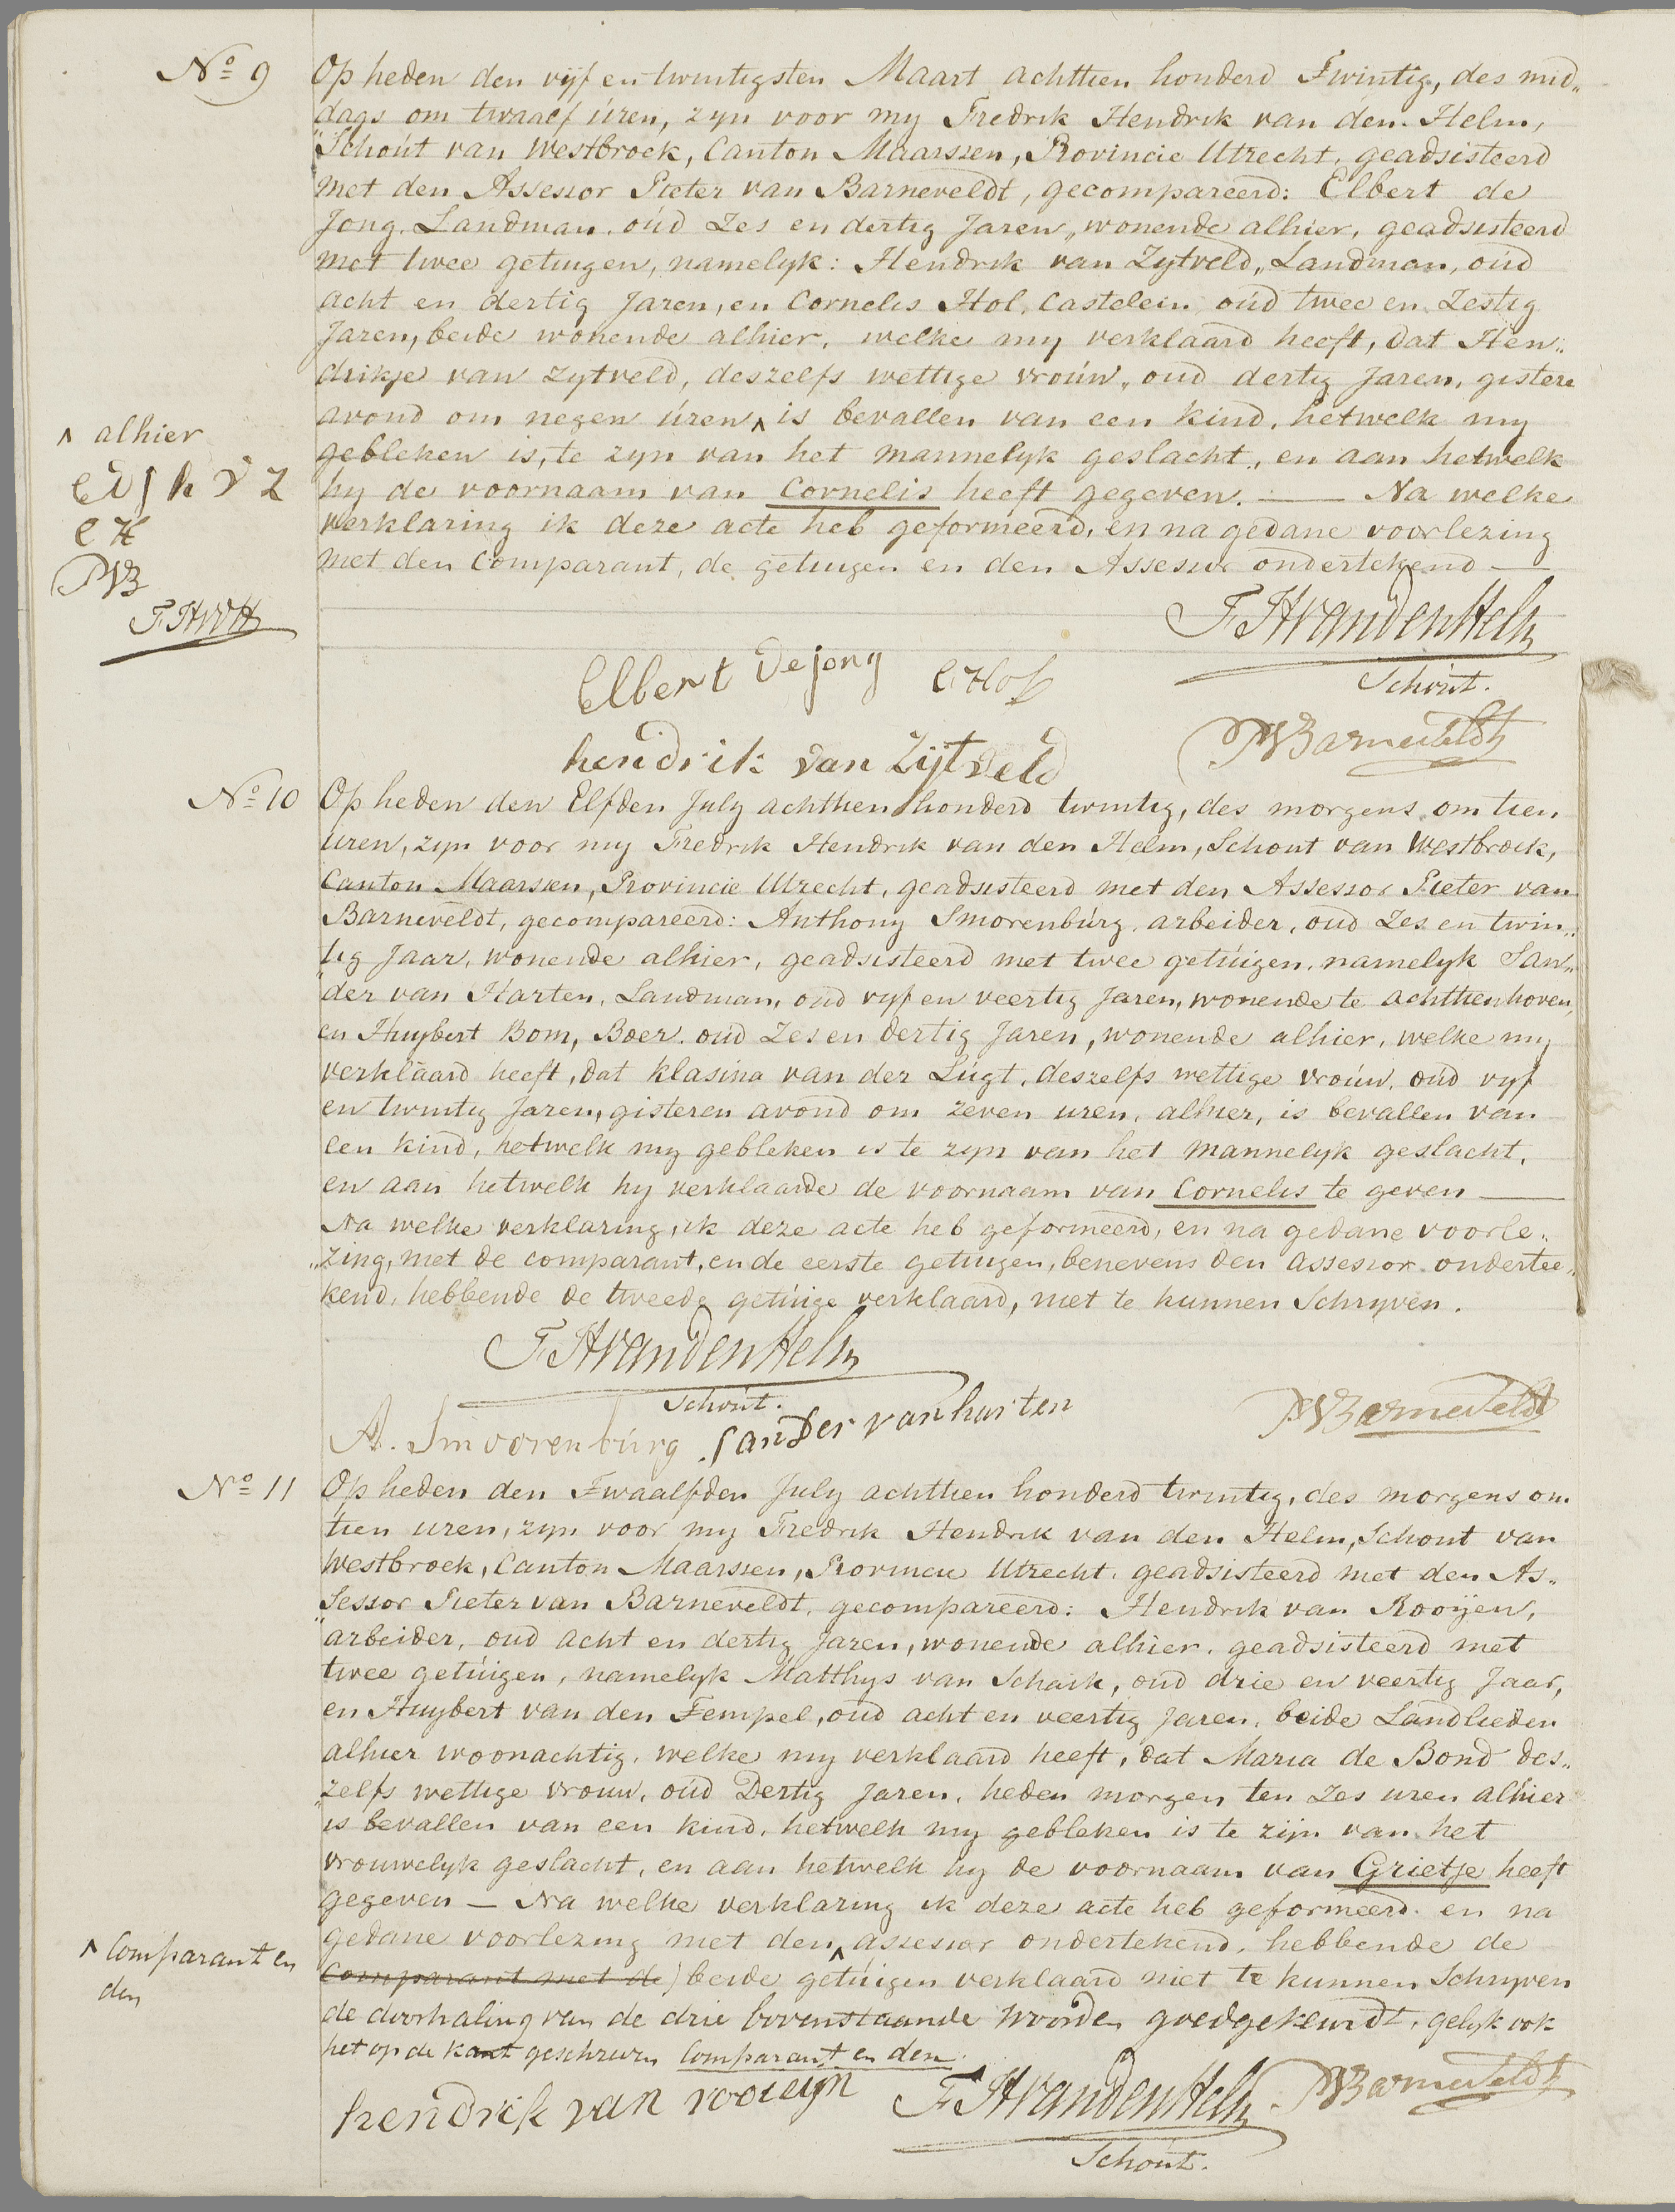 No 9
Op heden den vijf en twintigsten Maart achttien honderd Twintig, des mid„
dags om twaalf úren, zyn voor my Fredrik Hendrik van den Helm,
„Schoút van Westbroek, Canton Maarssen, Provincie Utrecht, geadsisteerd
met den Assessor Pieter van Barneveldt, gecompareerd: Elbert de
Jong, Landman, oúd Zes en dertig Jaren, wonende alhier, geadsisteerd
met twee getuigen, namelyk: Hendrik van Zytveld, Landman, oúd
acht en dertig Jaren, en Cornelis Hol, Castelein, oúd twee en Zestig
Jaren, beide wonende alhier, welke my verklaard heeft, dat Hen„
drikje van Zytveld, deszelfs wettige vroúw, oud dertig Jaren, gistere
avond om negen úren ^ is bevallen van een kind, hetwelk my
gebleken is, te zyn van het mannelyk geslacht, en aan hetwelk
hy de voornaam van Cornelis heeft gegeven. — Na welke
verklaring ik deze acte heb geformeerd, en na gedane voorlezing
met den Comparant, de getuigen en den Assessor ondertekend —
^ alhier
E D J h v Z
C H
PVB
F.HVDH
F H van den Helm
Schoút.
Elbert de jong
C Hol
PVBarneveldt
hendrik van Zijtveld
No 10
Op heden den Elfden July achttien honderd twintig, des morgens om tien
uren, zyn voor my Fredrik Hendrik van den Helm, Schout van Westbroek,
Canton Maarssen, Provincie Utrecht, geadsisteerd met den Assessor Pieter van
Barneveldt, gecompareerd: Anthony Smorenbúrg, arbeider, oud Zes en twin„
tig Jaar, wonende alhier, geadsisteerd met twee getúigen, namelyk San„
„der van Harten, Landman, oud vyf en veertig Jaren, wonende te Achttienhoven,
en Huybert Bom, Boer, oúd Zes en dertig Jaren, wonende alhier, welke my
verklaard heeft, dat Klasina van der Lúgt, deszelfs wettige vroúw, oúd vyf
en twintig Jaren, gisteren avond om zeven uren, alhier, is bevallen van
een kind, hetwelk my gebleken is te zyn van het mannelyk geslacht,
en aan hetwelk hy verklaarde de voornaam van Cornelis te geven —
Na welke verklaring, ik deze acte heb geformeerd, en na gedane voorle„
„zing, met de comparant, en de eerste getuigen, benevens den Assessor ondertee„
kend, hebbende de tweede getúige verklaard, niet te kunnen Schryven.
F H van den Helm
Schoút.
PVBarneveldt
A. Smoorenbúrg
sander van harten
No 11
Op heden den Twaalfden July achttien honderd twintig, des morgens om
tien uren, zyn voor my Fredrik Hendrik van den Helm, Schout van
Westbroek, Canton Maarssen, Provincie Utrecht, geadsisteerd met den As„
„sessor Pieter van Barneveldt, gecompareerd: Hendrik van Rooijen,
arbeider, oud acht en dertig Jaren, wonende alhier, geadsisteerd met
twee getúigen, namelyk Matthys van Schaik, oud drie en veertig Jaar,
en Huybert van den Tempel, oud acht en veertig Jaren, beide Landlieden
alhier woonachtig, welke my verklaard heeft, dat Maria de Bond des„
„zelfs wettige vrouw, oúd Dertig Jaren, heden morgen ten Zes uren alhier
is bevallen van een kind, hetwelk my gebleken is te zijn van het
vrouwelyk geslacht, en aan hetwelk hy de voornaam van Grietje heeft
gegeven — Na welke verklaring ik deze acte heb geformeerd, en na
gedane voorlezing met den ^ assessor ondertekend, hebbende de
Comparant met de) beide getúigen verklaard niet te kunnen Schryven
de doorhaling van de drie bovenstaande woorde goedgekeurdt, gelyk ook
het op de kant geschreven Comparant en den
^ Comparant en
den
hendrik van rooieijn
F H van den Helm
Schoút.
PVBarneveldt